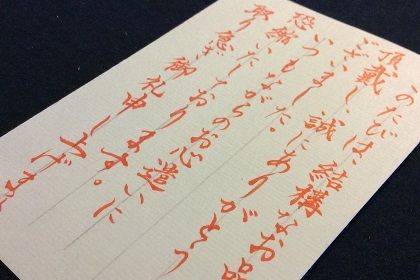 このたびは結構なお品
頂戴し誠にありがとう
ございました。
いつもながらのお心遣いに
恐縮いたしております。
取り急ぎ御礼申し上げま